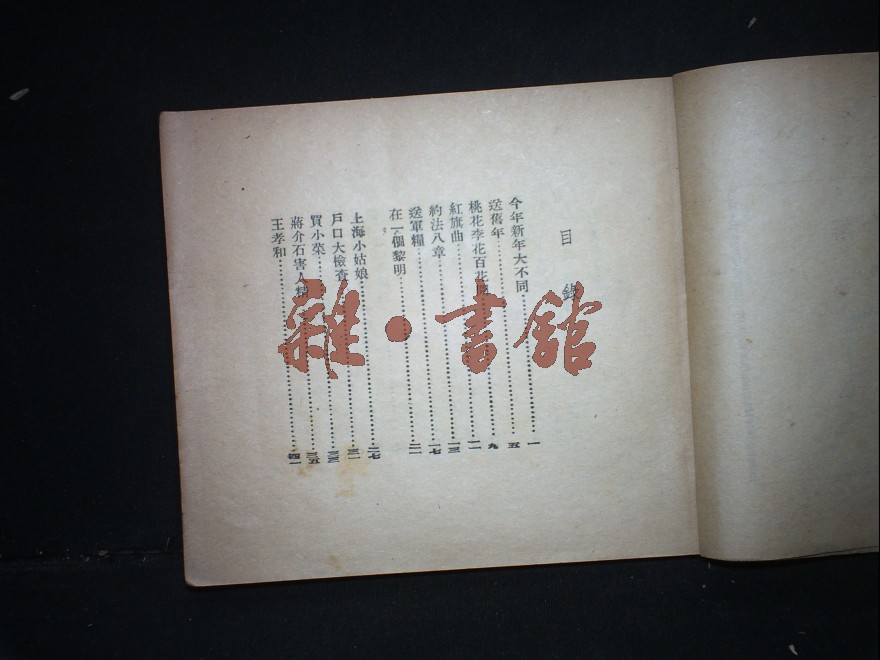 目錄
今年新年大不同……一
送舊年……五
桃花李花百花……九
紅旗曲……一一
約法八章……一三
送軍糧……一七
在一個黎明……二一
上海小姑娘……二七
戶口大檢查……三一
買小菜……三三
蔣介石害人精……三五
王孝和……四一
雜・書館